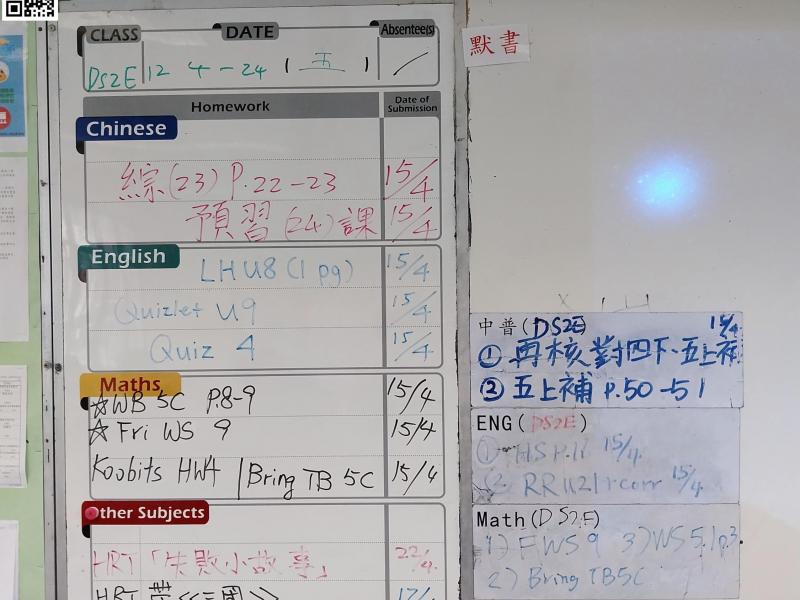 CLASS DATE Absentee(s)
DS2E 12 4-24 (五) /
Homework Date of Submission
Chinese
綜(23) P.22-23 15/4
預習(24)課 15/4
English
LHU8 (1 pg) 15/4
Quizlet U.9 15/4
Quiz 4 15/4
Maths
☆WB 5C P.8-9 15/4
☆Fri WS 9 15/4
Koobits HW4 | Bring TB 5C 15/4
Other Subjects
HRT「失敗小故事」 22/4
HRT 帶<<三國>> 17/
默書
中普(DS2E) 15/4
① 再核對四下、五上補
② 五上補 P.50-51
ENG(DS2E)
① HS P.11 15/4
② RR U2 15/4
Math(DS2E)
1) FWS 9 3) WS 5.1 p.3
2) Bring TB5C